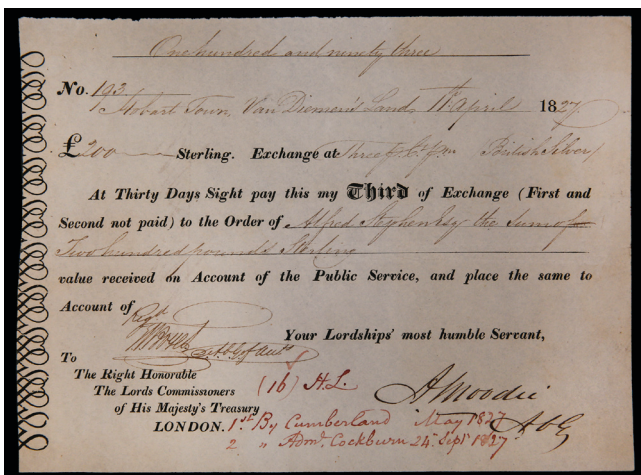 One hundred and ninety three
No. 193
Hobart Town, Van Diemen's Land, 11th April 1827.
£200 Sterling. Exchange at three p Ct. British Silver
At Thirty Days Sight pay this my Third of Exchange (First and
Second not paid) to the Order of Alfred Stephen Esq the sum of
Two hundred pounds Sterling
value received on Account of the Public Service, and place the same to
Account of
Regd
Your Lordships' most humble Servant,
To
The Right Honorable
The Lords Commissioners
of His Majesty's Treasury
LONDON.
(16) H.L.
A Moodie
A C G
1st By Cumberland May 1827
2 " Adml. Cockburn 24 Sept 1827